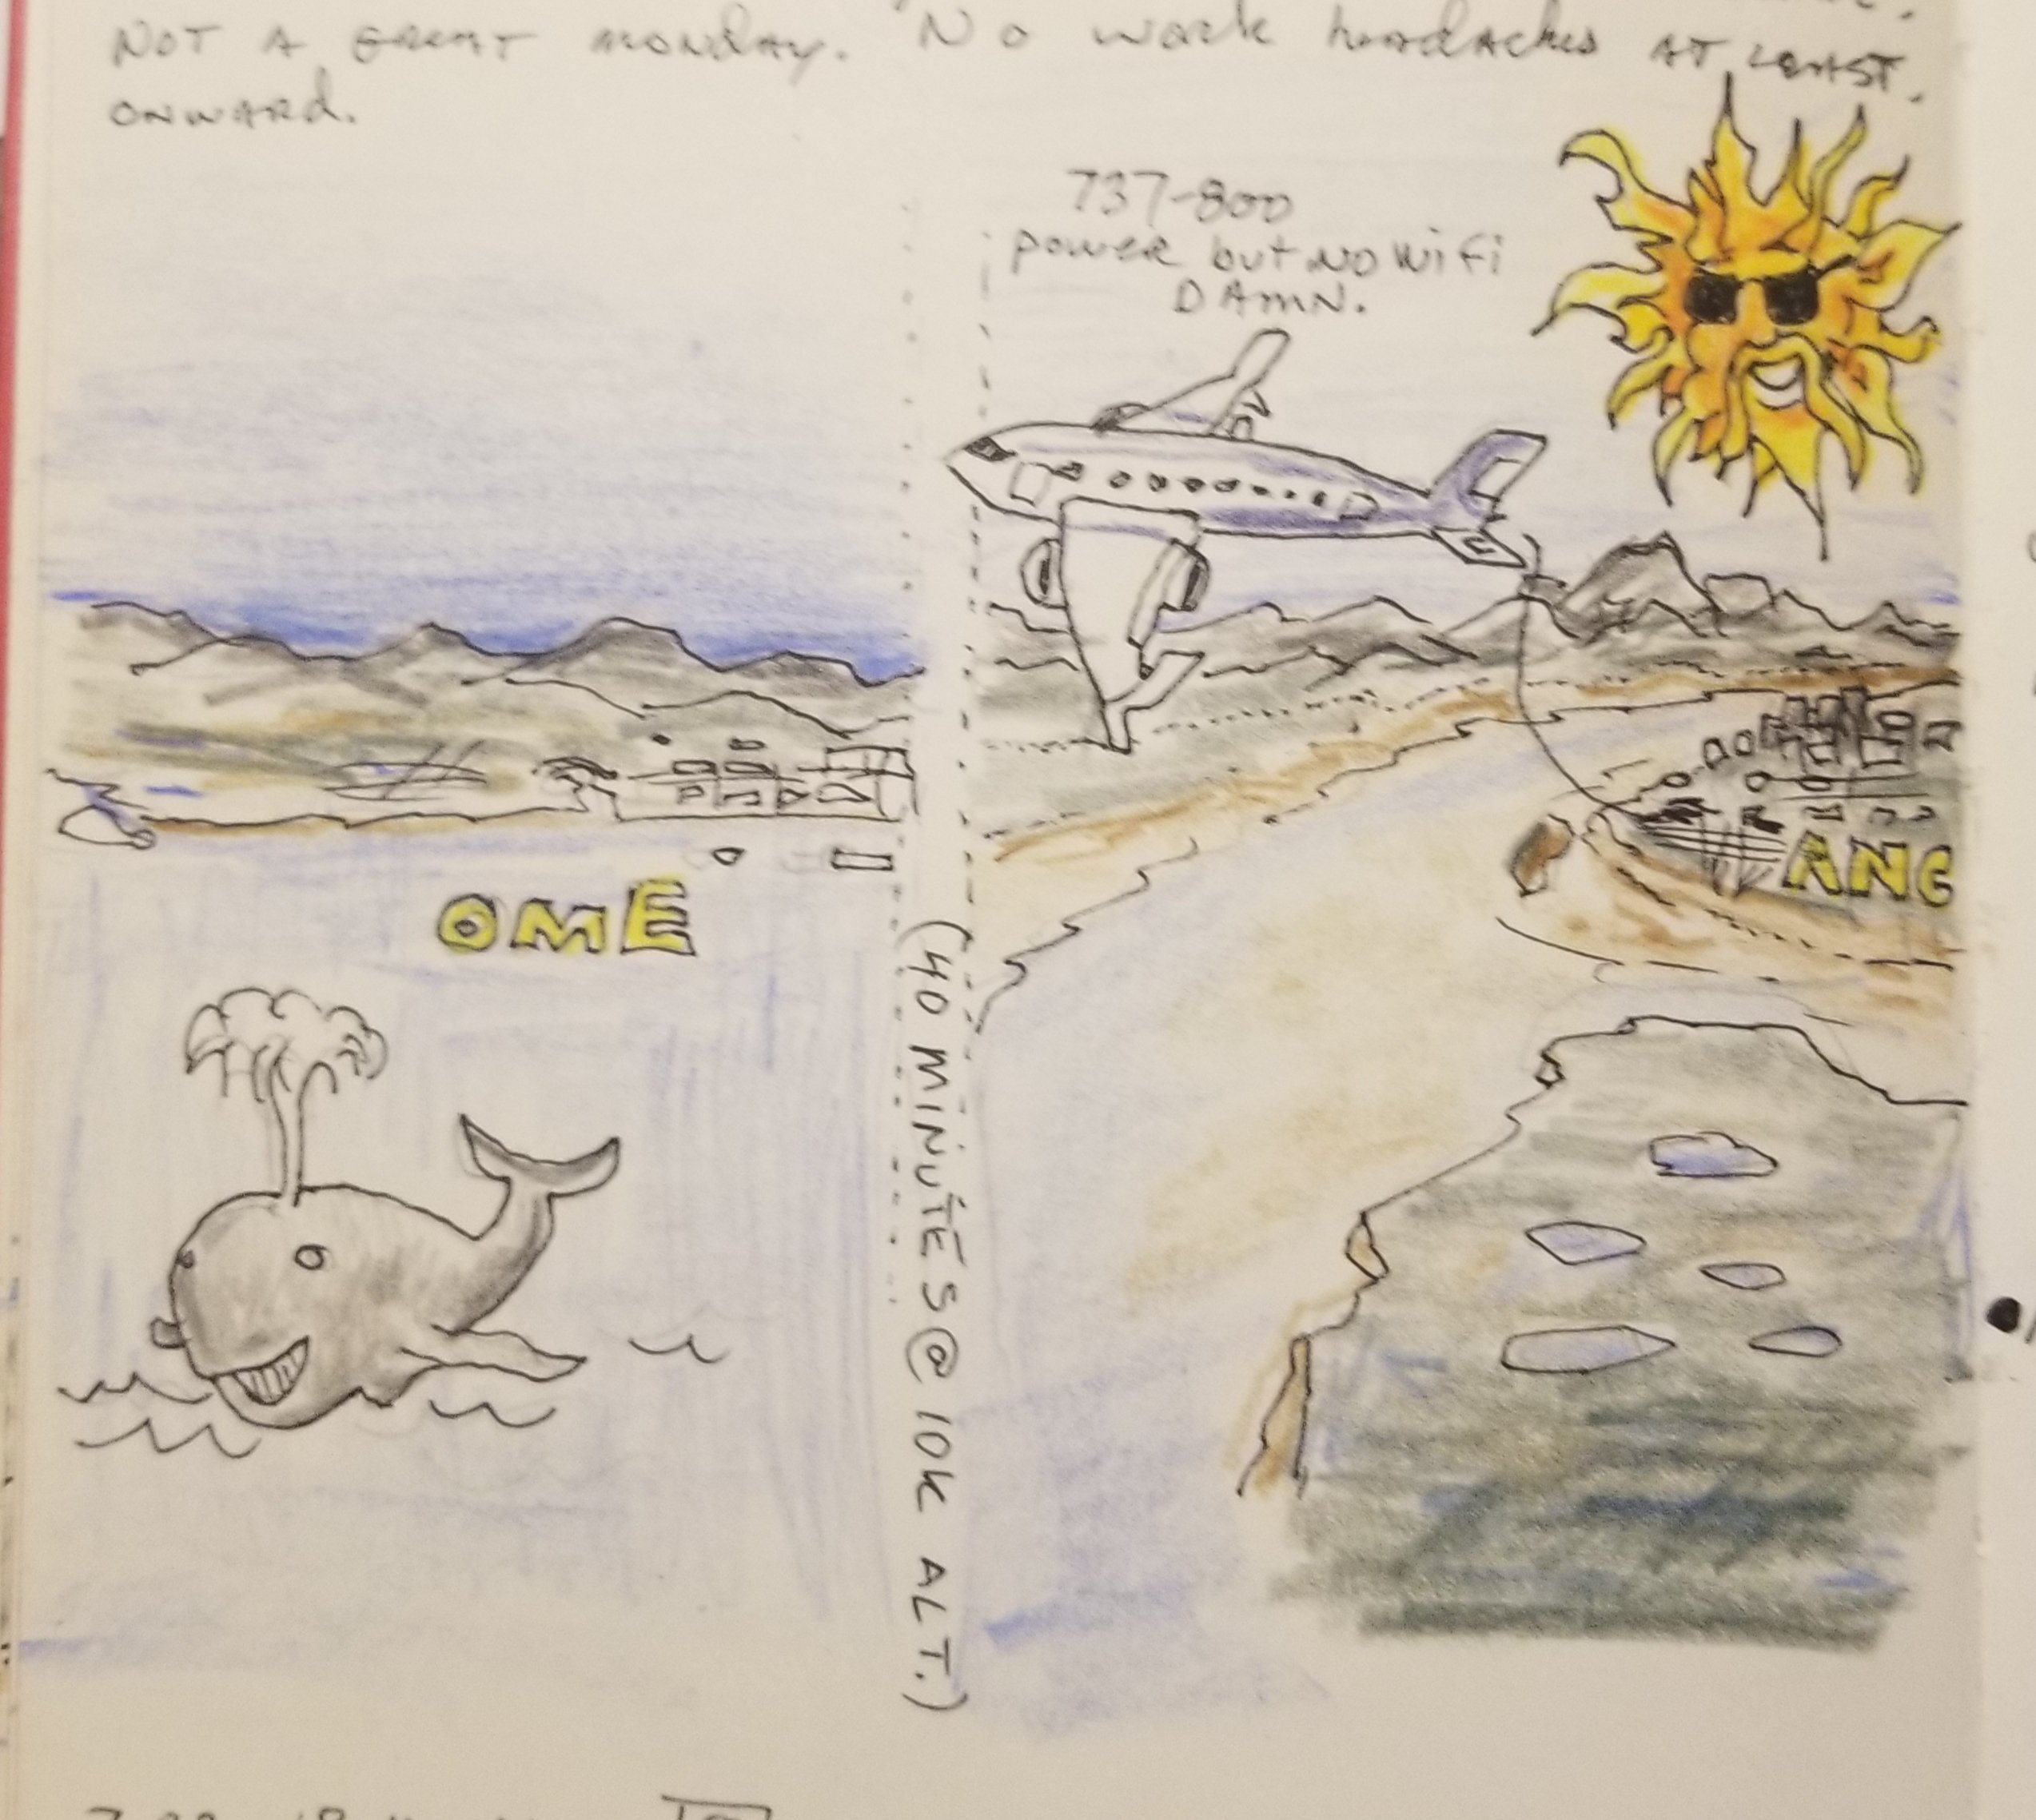 NOT A GREAT MONDAY. NO WORK HEADACHES AT LEAST.
ONWARD.
737-800
POWER but NO WiFi
DAMN.
ANC
OME
(40 MINUTES @ 10K ALT.)